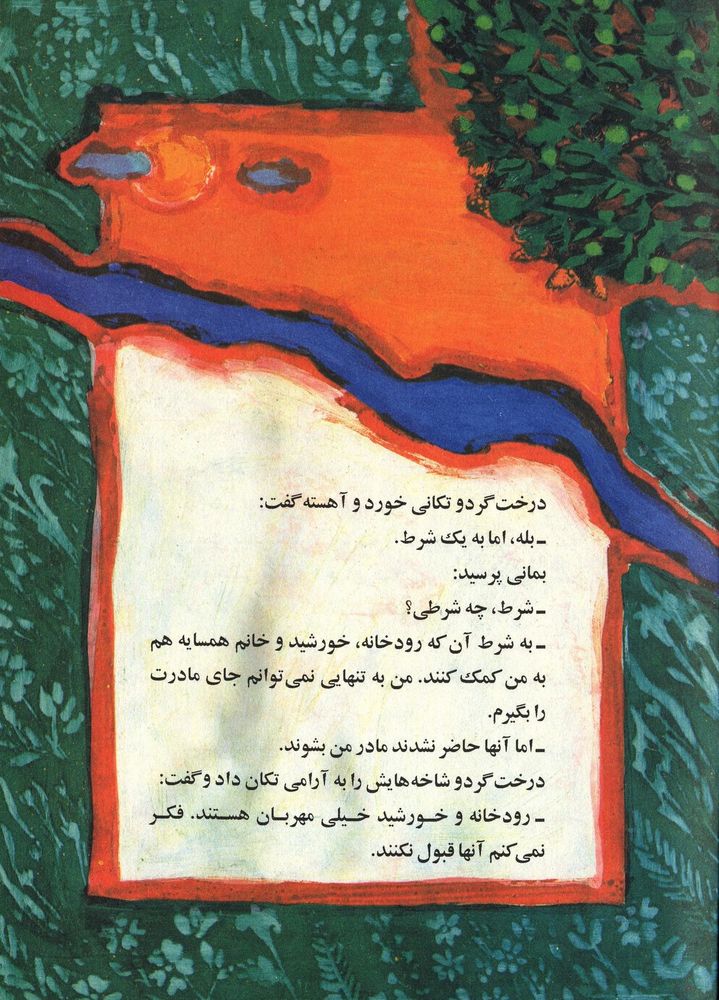 درخت گردو تکانی خورد و آهسته گفت:
ـ بله، اما به یک شرط.
بمانی پرسید:
ـ شرط، چه شرطی؟
ـ به شرط آن که رودخانه، خورشید و خانم همسایه هم
به من کمک کنند. من به تنهایی نمی‌توانم جای مادرت
را بگیرم.
ـ اما آنها حاضر نشدند مادر من بشوند.
درخت گردو شاخه‌هایش را به آرامی تکان داد و گفت:
ـ رودخانه و خـورشید خـیلی مهربان هسـتند. فکـر
نمی‌کنم آنها قبول نکنند.